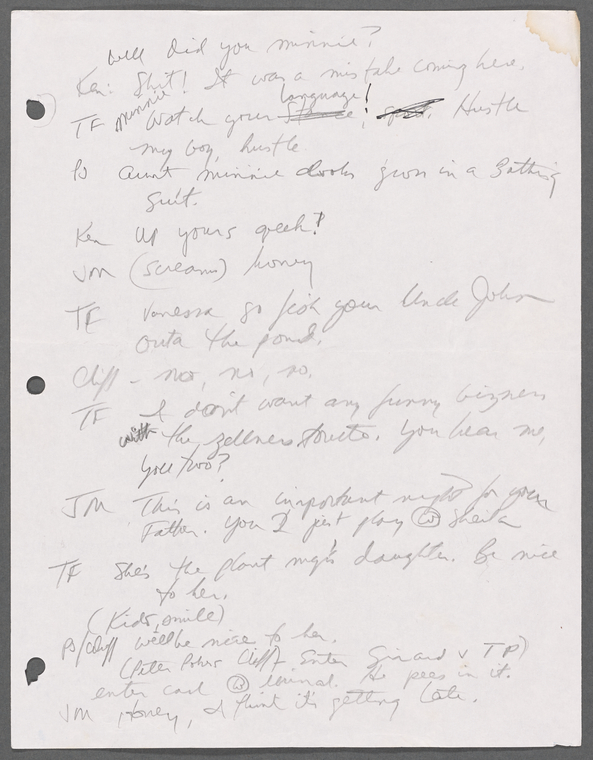 well did you minnie?
Ken: Shit! It was a mistake coming here.
minnie language!
TF Watch your ! Hustle
my boy, hustle
PS aunt minnie looks gross in a Bathing
Suit.
Ken up yours geek!
JM (screams) honey
TF Vanessa go fish your Uncle John
outa the pond.
Cliff - no, no, no.
TF I don't want any funny bizness
with the . You hear me,
you two?
JM This is an important night for your
Father. You 2 just play W Sheila
TF She's the plant mgr's daughter. Be nice
to her.
(Kids smile)
PS/Cliff we'll be nice to her.
(Peter Cliff. Enter v TP)
enter W urinal. He pees in it.
JM Honey, I think it's getting late.